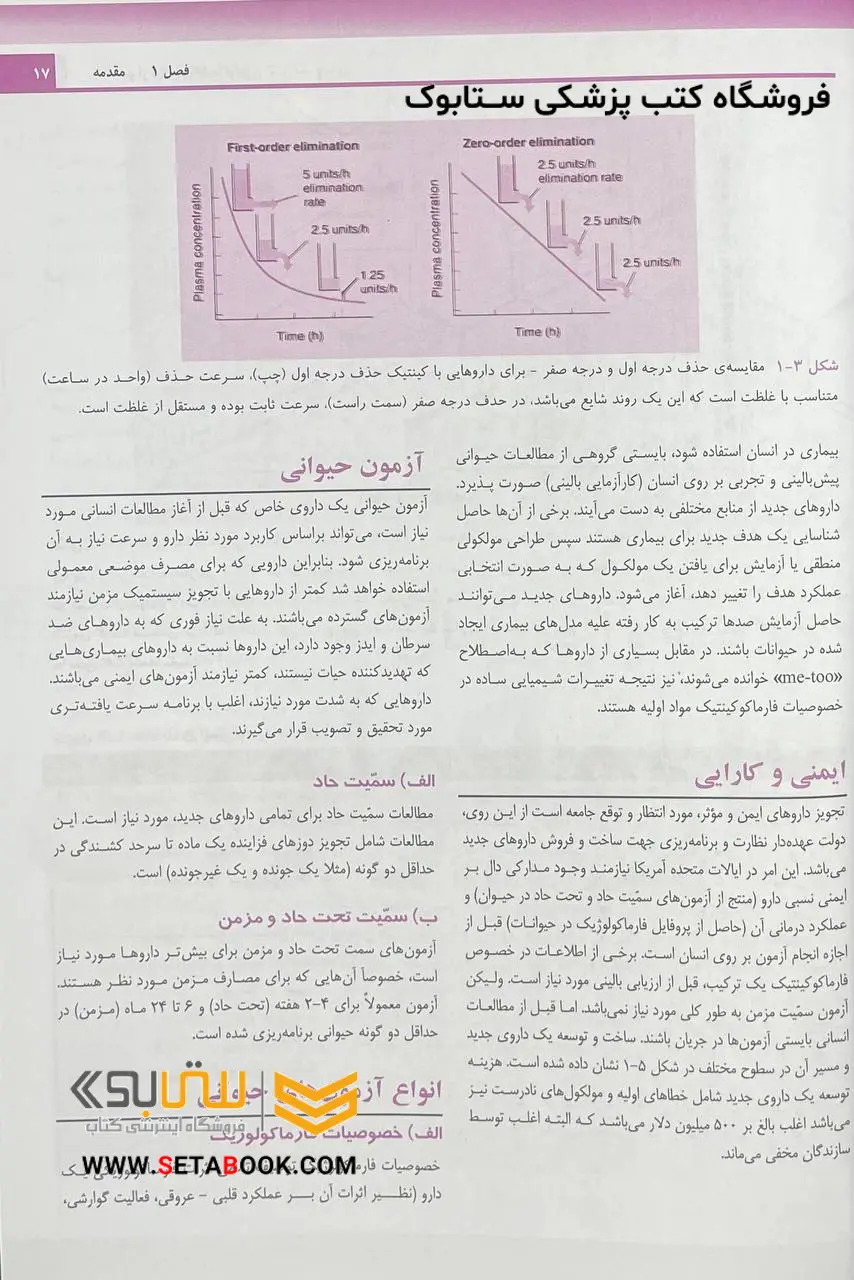 فصل ۱ مقدمه ۱۷
فروشگاه کتب پزشکی ستابوک
First-order elimination
5 units/h
elimination
rate
2.5 units/h
1.25
units/h
Plasma concentration
Time (h)
Zero-order elimination
2.5 units/h
elimination rate
2.5 units/h
2.5 units/h
Plasma concentration
Time (h)
شکل ۳-۱ مقایسه‌ی حذف درجه اول و درجه صفر - برای داروهایی با کینتیک حذف درجه اول (چپ)، سرعت حذف (واحد در ساعت)
متناسب با غلظت است که این یک روند شایع می‌باشد، در حدف درجه صفر (سمت راست)، سرعت ثابت بوده و مستقل از غلظت است.
بیماری در انسان استفاده شود، بایستی گروهی از مطالعات حیوانی
پیش‌بالینی و تجربی بر روی انسان (کارآزمایی بالینی) صورت پذیرد.
داروهای جدید از منابع مختلفی به دست می‌آیند. برخی از آن‌ها حاصل
شناسایی یک هدف جدید برای بیماری هستند سپس طراحی مولکولی
منطقی یا آزمایش برای یافتن یک مولکول که به صورت انتخابی
عملکرد هدف را تغییر دهد، آغاز می‌شود. داروهای جدید می‌توانند
حاصل آزمایش صدها ترکیب به کار رفته علیه مدل‌های بیماری ایجاد
شده در حیوانات باشند. در مقابل بسیاری از داروها که به‌اصطلاح
«me-too» خوانده می‌شوند، نیز نتیجه تغییرات شیمیایی ساده در
خصوصیات فارماکوکینتیک مواد اولیه هستند.
ایمنی و کارایی
تجویز داروهای ایمن و مؤثر، مورد انتظار و توقع جامعه است از این روی،
دولت عهده‌دار نظارت و برنامه‌ریزی جهت ساخت و فروش داروهای جدید
می‌باشد. این امر در ایالات متحده آمریکا نیازمند وجود مدارکی دال بر
ایمنی نسبی دارو (منتج از آزمون‌های سمّیت حاد و تحت حاد در حیوان) و
عملکرد درمانی آن (حاصل از پروفایل فارماکولوژیک در حیوانات) قبل از
اجازه انجام آزمون بر روی انسان است. برخی از اطلاعات در خصوص
فارماکوکینتیک یک ترکیب، قبل از ارزیابی بالینی مورد نیاز است. ولیکن
آزمون سمّیت مزمن به طور کلی مورد نیاز نمی‌باشد. اما قبل از مطالعات
انسانی بایستی آزمون‌ها در جریان باشند. ساخت و توسعه یک داروی جدید
و مسیر آن در سطوح مختلف در شکل ۵-۱ نشان داده شده است. هزینه
توسعه یک داروی جدید شامل خطاهای اولیه و مولکول‌های نادرست نیز
می‌باشد اغلب بالغ بر ۵۰۰ میلیون دلار می‌باشد که البته اغلب توسط
سازندگان مخفی می‌ماند.
آزمون حیوانی
آزمون حیوانی یک داروی خاص که قبل از آغاز مطالعات انسانی مورد
نیاز است، می‌تواند براساس کاربرد مورد نظر دارو و سرعت نیاز به آن
برنامه‌ریزی شود. بنابراین دارویی که برای مصرف موضعی معمولی
استفاده خواهد شد کمتر از داروهایی با تجویز سیستمیک مزمن نیازمند
آزمون‌های گسترده می‌باشند. به علت نیاز فوری که به داروهای ضد
سرطان و ایدز وجود دارد، این داروها نسبت به داروهای بیماری‌هایی
که تهدیدکننده حیات نیستند، کمتر نیازمند آزمون‌های ایمنی می‌باشند.
داروهایی که به شدت مورد نیازند، اغلب با برنامه سرعت یافته‌تری
مورد تحقیق و تصویب قرار می‌گیرند.
الف) سمّیت حاد
مطالعات سمّیت حاد برای تمامی داروهای جدید، مورد نیاز است. این
مطالعات شامل تجویز دوزهای فزاینده یک ماده تا سرحد کشندگی در
حداقل دو گونه (مثلا یک جونده و یک غیرجونده) است.
ب) سمّیت تحت حاد و مزمن
آزمون‌های سمت تحت حاد و مزمن برای بیش‌تر داروها مورد نیاز
است، خصوصاً آن‌هایی که برای مصارف مزمن مورد نظر هستند.
آزمون معمولاً برای ۴-۲ هفته (تحت حاد) و ۶ تا ۲۴ ماه (مزمن) در
حداقل دو گونه حیوانی برنامه‌ریزی شده است.
انواع حیوانی
الف) خصوصیات فارماکولوژیک
خصوصیات
دارو (نظیر اثرات آن بر عملکرد قلبی - عروقی، فعالیت گوارشی،
ستابوک
فروشگاه اینترنتی کتاب
WWW.SETABOOK.COM